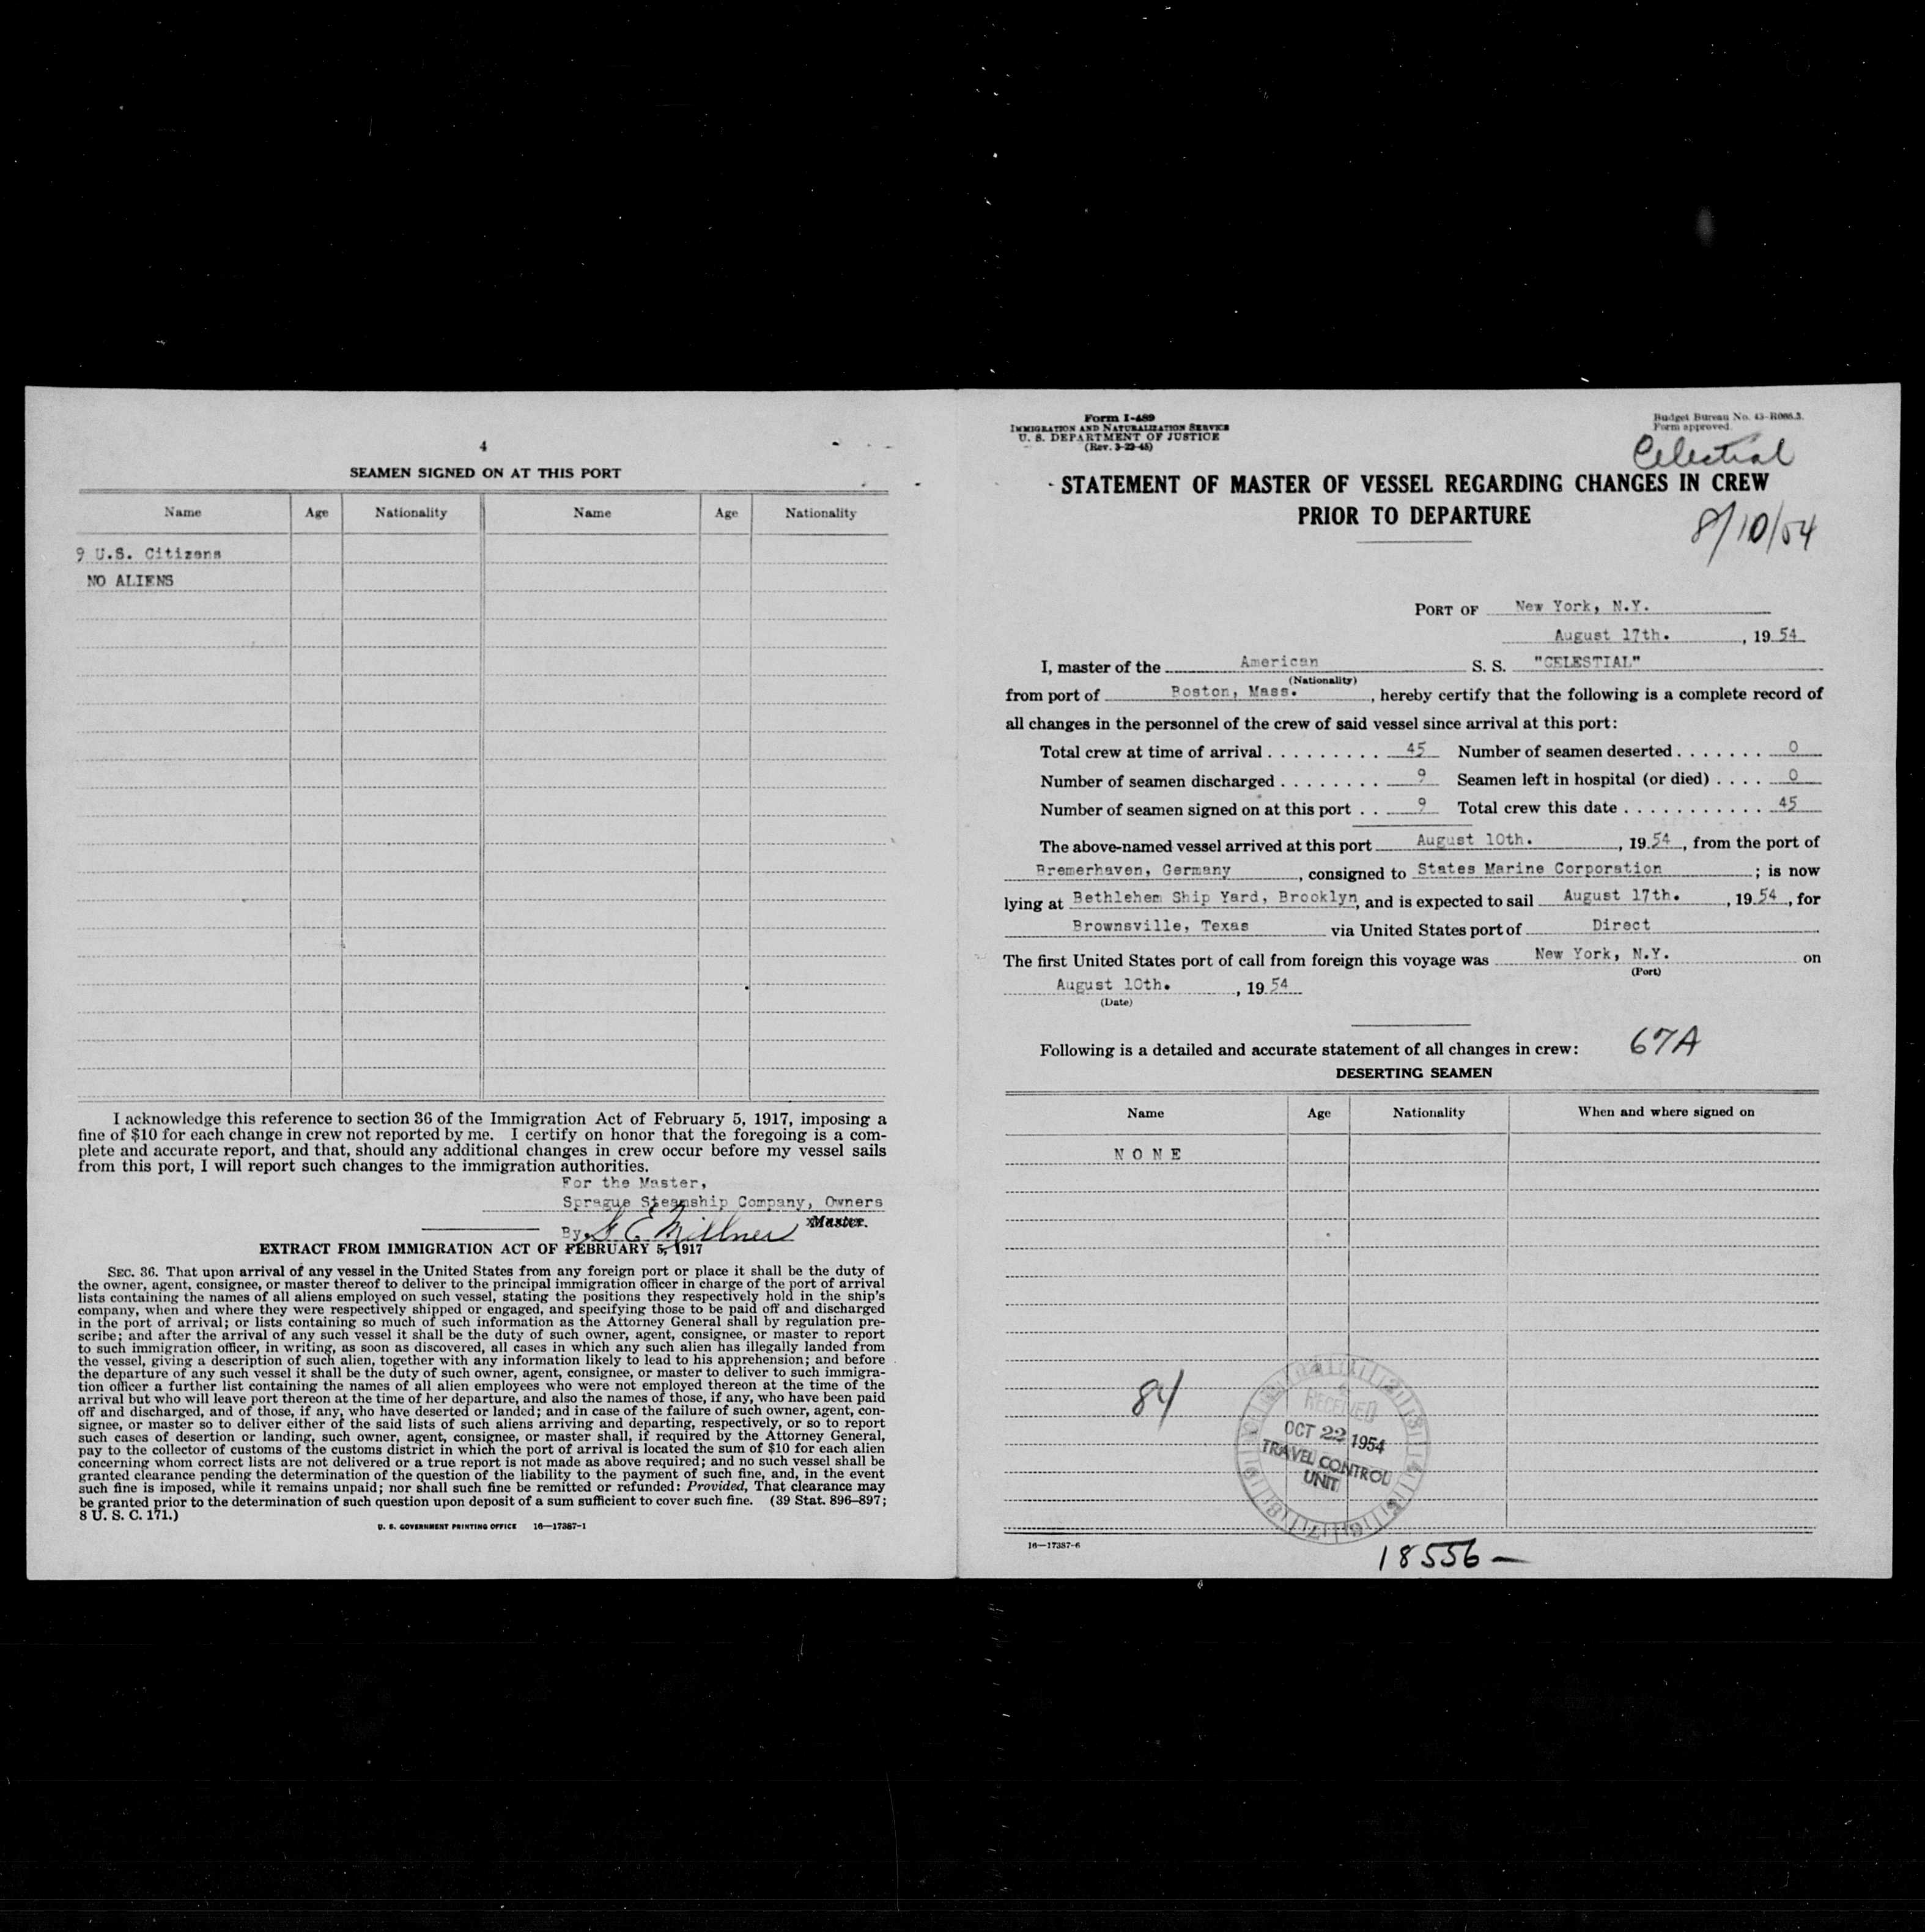 4
SEAMEN SIGNED ON AT THIS PORT
Name Age Nationality Name Age Nationality
9 U.S. Citizens
NO ALIENS
I acknowledge this reference to section 36 of the Immigration Act of February 5, 1917, imposing a
fine of $10 for each change in crew not reported by me. I certify on honor that the foregoing is a com-
plete and accurate report, and that, should any additional changes in crew occur before my vessel sails
from this port, I will report such changes to the immigration authorities.
For the Master,
Sprague Steamship Company, Owners
By G E Millner Master.
EXTRACT FROM IMMIGRATION ACT OF FEBRUARY 5, 1917
SEC. 36. That upon arrival of any vessel in the United States from any foreign port or place it shall be the duty of
the owner, agent, consignee, or master thereof to deliver to the principal immigration officer in charge of the port of arrival
lists containing the names of all aliens employed on such vessel, stating the positions they respectively hold in the ship's
company, when and where they were respectively shipped or engaged, and specifying those to be paid off and discharged
in the port of arrival; or lists containing so much of such information as the Attorney General shall by regulation pre-
scribe; and after the arrival of any such vessel it shall be the duty of such owner, agent, consignee, or master to report
to such immigration officer, in writing, as soon as discovered, all cases in which any such alien has illegally landed from
the vessel, giving a description of such alien, together with any information likely to lead to his apprehension; and before
the departure of any such vessel it shall be the duty of such owner, agent, consignee, or master to deliver to such immigra-
tion officer a further list containing the names of all alien employees who were not employed thereon at the time of the
arrival but who will leave port thereon at the time of her departure, and also the names of those, if any, who have been paid
off and discharged, and of those, if any, who have deserted or landed; and in case of the failure of such owner, agent, con-
signee, or master so to deliver either of the said lists of such aliens arriving and departing, respectively, or so to report
such cases of desertion or landing, such owner, agent, consignee, or master shall, if required by the Attorney General,
pay to the collector of customs of the customs district in which the port of arrival is located the sum of $10 for each alien
concerning whom correct lists are not delivered or a true report is not made as above required; and no such vessel shall be
granted clearance pending the determination of the question of the liability to the payment of such fine, and, in the event
such fine is imposed, while it remains unpaid; nor shall such fine be remitted or refunded: Provided, That clearance may
be granted prior to the determination of such question upon deposit of a sum sufficient to cover such fine. (39 Stat. 896–897;
8 U. S. C. 171.)
U. S. GOVERNMENT PRINTING OFFICE 16—17387-1
Form I-489
IMMIGRATION AND NATURALIZATION SERVICE
U. S. DEPARTMENT OF JUSTICE
(Rev. 3-23-45)
Budget Bureau No. 43-R066.3.
Form approved.
Celestial
STATEMENT OF MASTER OF VESSEL REGARDING CHANGES IN CREW
PRIOR TO DEPARTURE
8/10/54
PORT OF New York, N.Y.
August 17th. , 19 54
I, master of the American S. S. "CELESTIAL"
(Nationality)
from port of Boston, Mass. , hereby certify that the following is a complete record of
all changes in the personnel of the crew of said vessel since arrival at this port:
Total crew at time of arrival . . . . . . . . . 45 Number of seamen deserted . . . . . . . 0
Number of seamen discharged . . . . . . . . 9 Seamen left in hospital (or died) . . . . 0
Number of seamen signed on at this port . . 9 Total crew this date . . . . . . . . . . . . 45
The above-named vessel arrived at this port August 10th. , 19 54 , from the port of
Bremerhaven, Germany , consigned to States Marine Corporation ; is now
lying at Bethlehem Ship Yard, Brooklyn, and is expected to sail August 17th. , 19 54 , for
Brownsville, Texas via United States port of Direct
The first United States port of call from foreign this voyage was New York, N.Y. on
(Port)
August 10th. , 19 54
(Date)
Following is a detailed and accurate statement of all changes in crew: 67A
DESERTING SEAMEN
Name Age Nationality When and where signed on
N O N E
84
RECEIVED
OCT 22 1954
TRAVEL CONTROL
UNIT
16—17387-6
18556 —